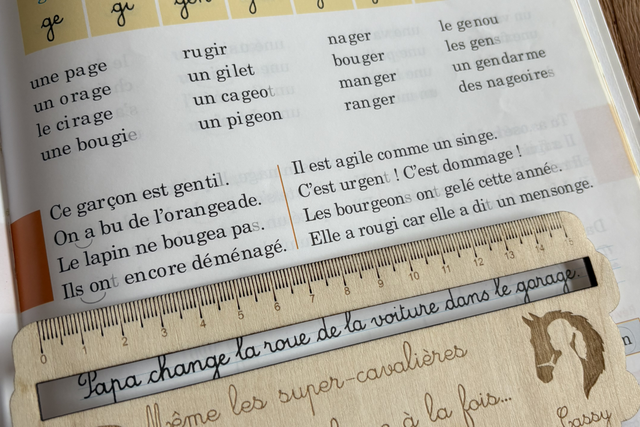 ge gi
une page
un orage
le cirage
une bougie
rugir
un gilet
un cageot
un pigeon
nager
bouger
manger
ranger
le genou
les gens
un gendarme
des nageoires
Ce garçon est gentil.
On a bu de l'orangeade.
Le lapin ne bougea pas.
Ils ont encore déménagé.
Il est agile comme un singe.
C'est urgent ! C'est dommage !
Les bourgeons ont gelé cette année.
Elle a rougi car elle a dit un mensonge.
0 1 2 3 4 5 6 7 8 9 10 11 12 13 14
Papa change la roue de la voiture dans le garage.
Même les super-cavalières
à la fois...
Cassy